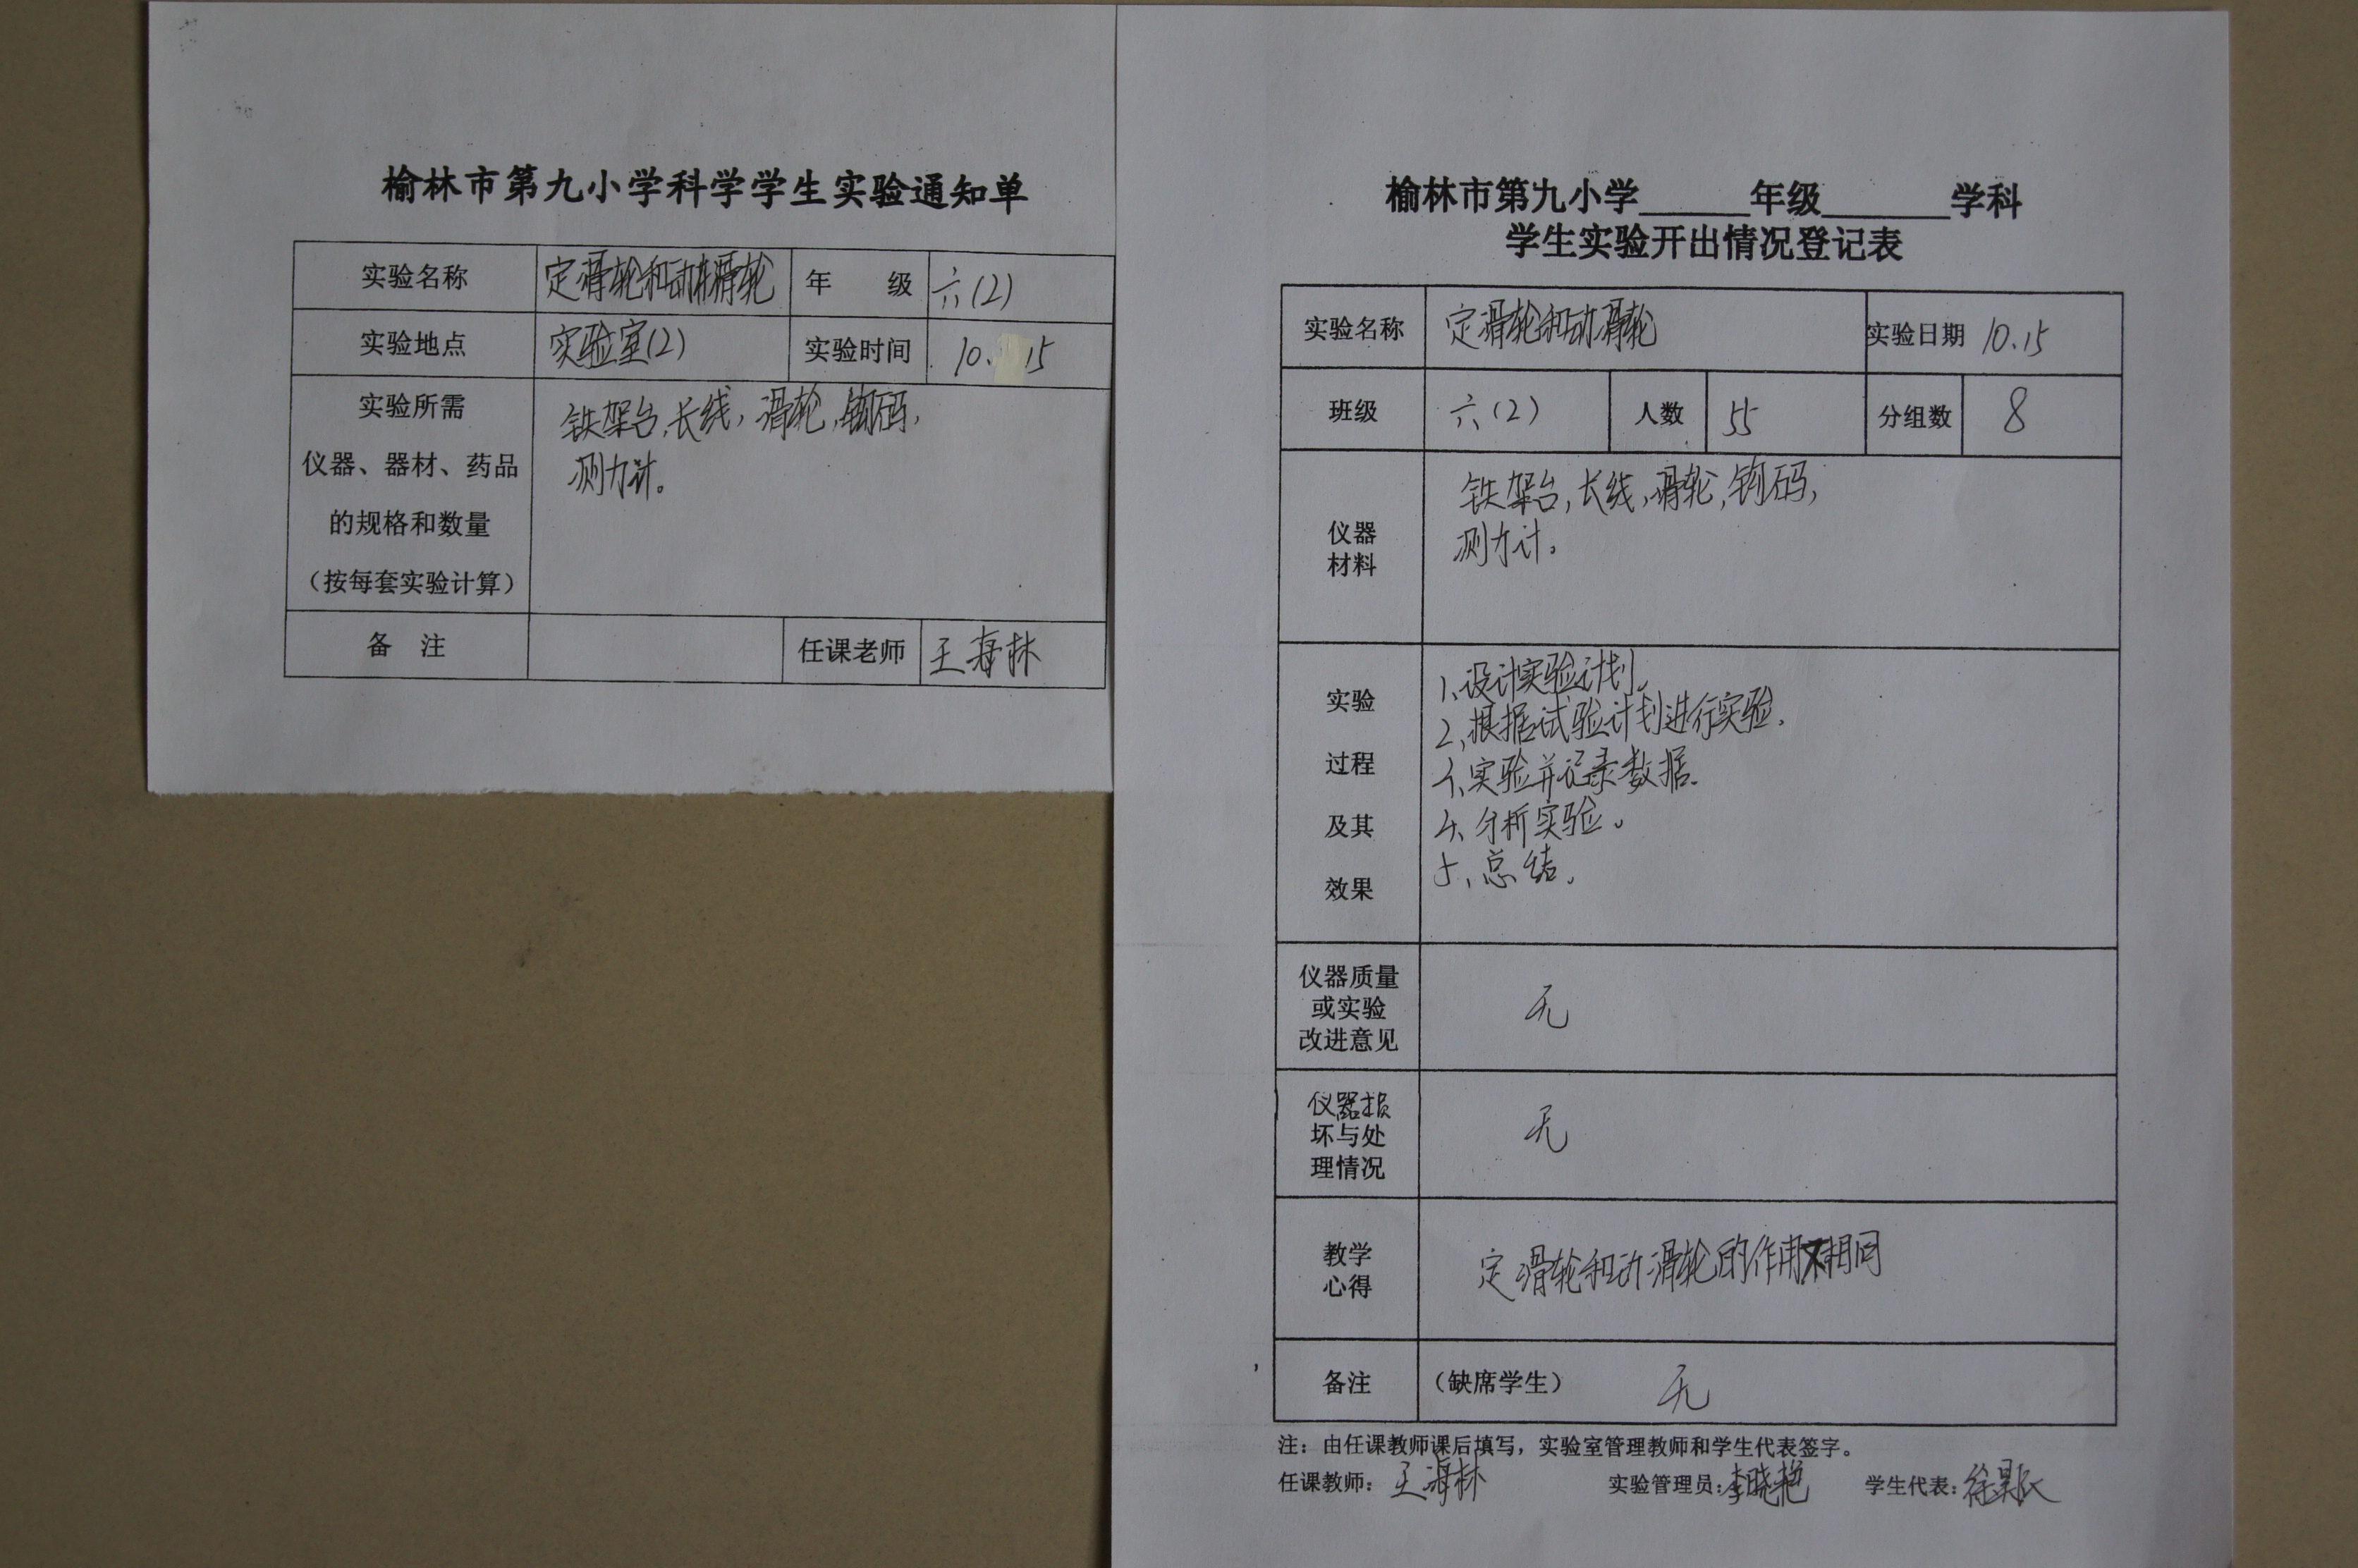 榆林市第九小学科学学生实验通知单
实验名称 定滑轮和动滑轮 年 级 六(2)
实验地点 实验室(2) 实验时间 10. 15
实验所需
仪器、器材、药品
的规格和数量
（按每套实验计算）
铁架台,长线,滑轮,钩码,
测力计。
备 注 任课老师 王海林
榆林市第九小学______年级______学科
学生实验开出情况登记表
实验名称 定滑轮和动滑轮 实验日期 10.15
班级 六(2) 人数 55 分组数 8
仪器
材料
铁架台,长线,滑轮,钩码,
测力计。
实验
过程
及其
效果
1、设计实验计划。
2、根据试验计划进行实验.
3、实验并记录数据.
4、分析实验。
5、总结。
仪器质量
或实验
改进意见
无
仪器损
坏与处
理情况
无
教学
心得
定滑轮和动滑轮的作用不相同
备注 （缺席学生） 无
注：由任课教师课后填写，实验室管理教师和学生代表签字。
任课教师：王海林 实验管理员:李晓艳 学生代表:徐